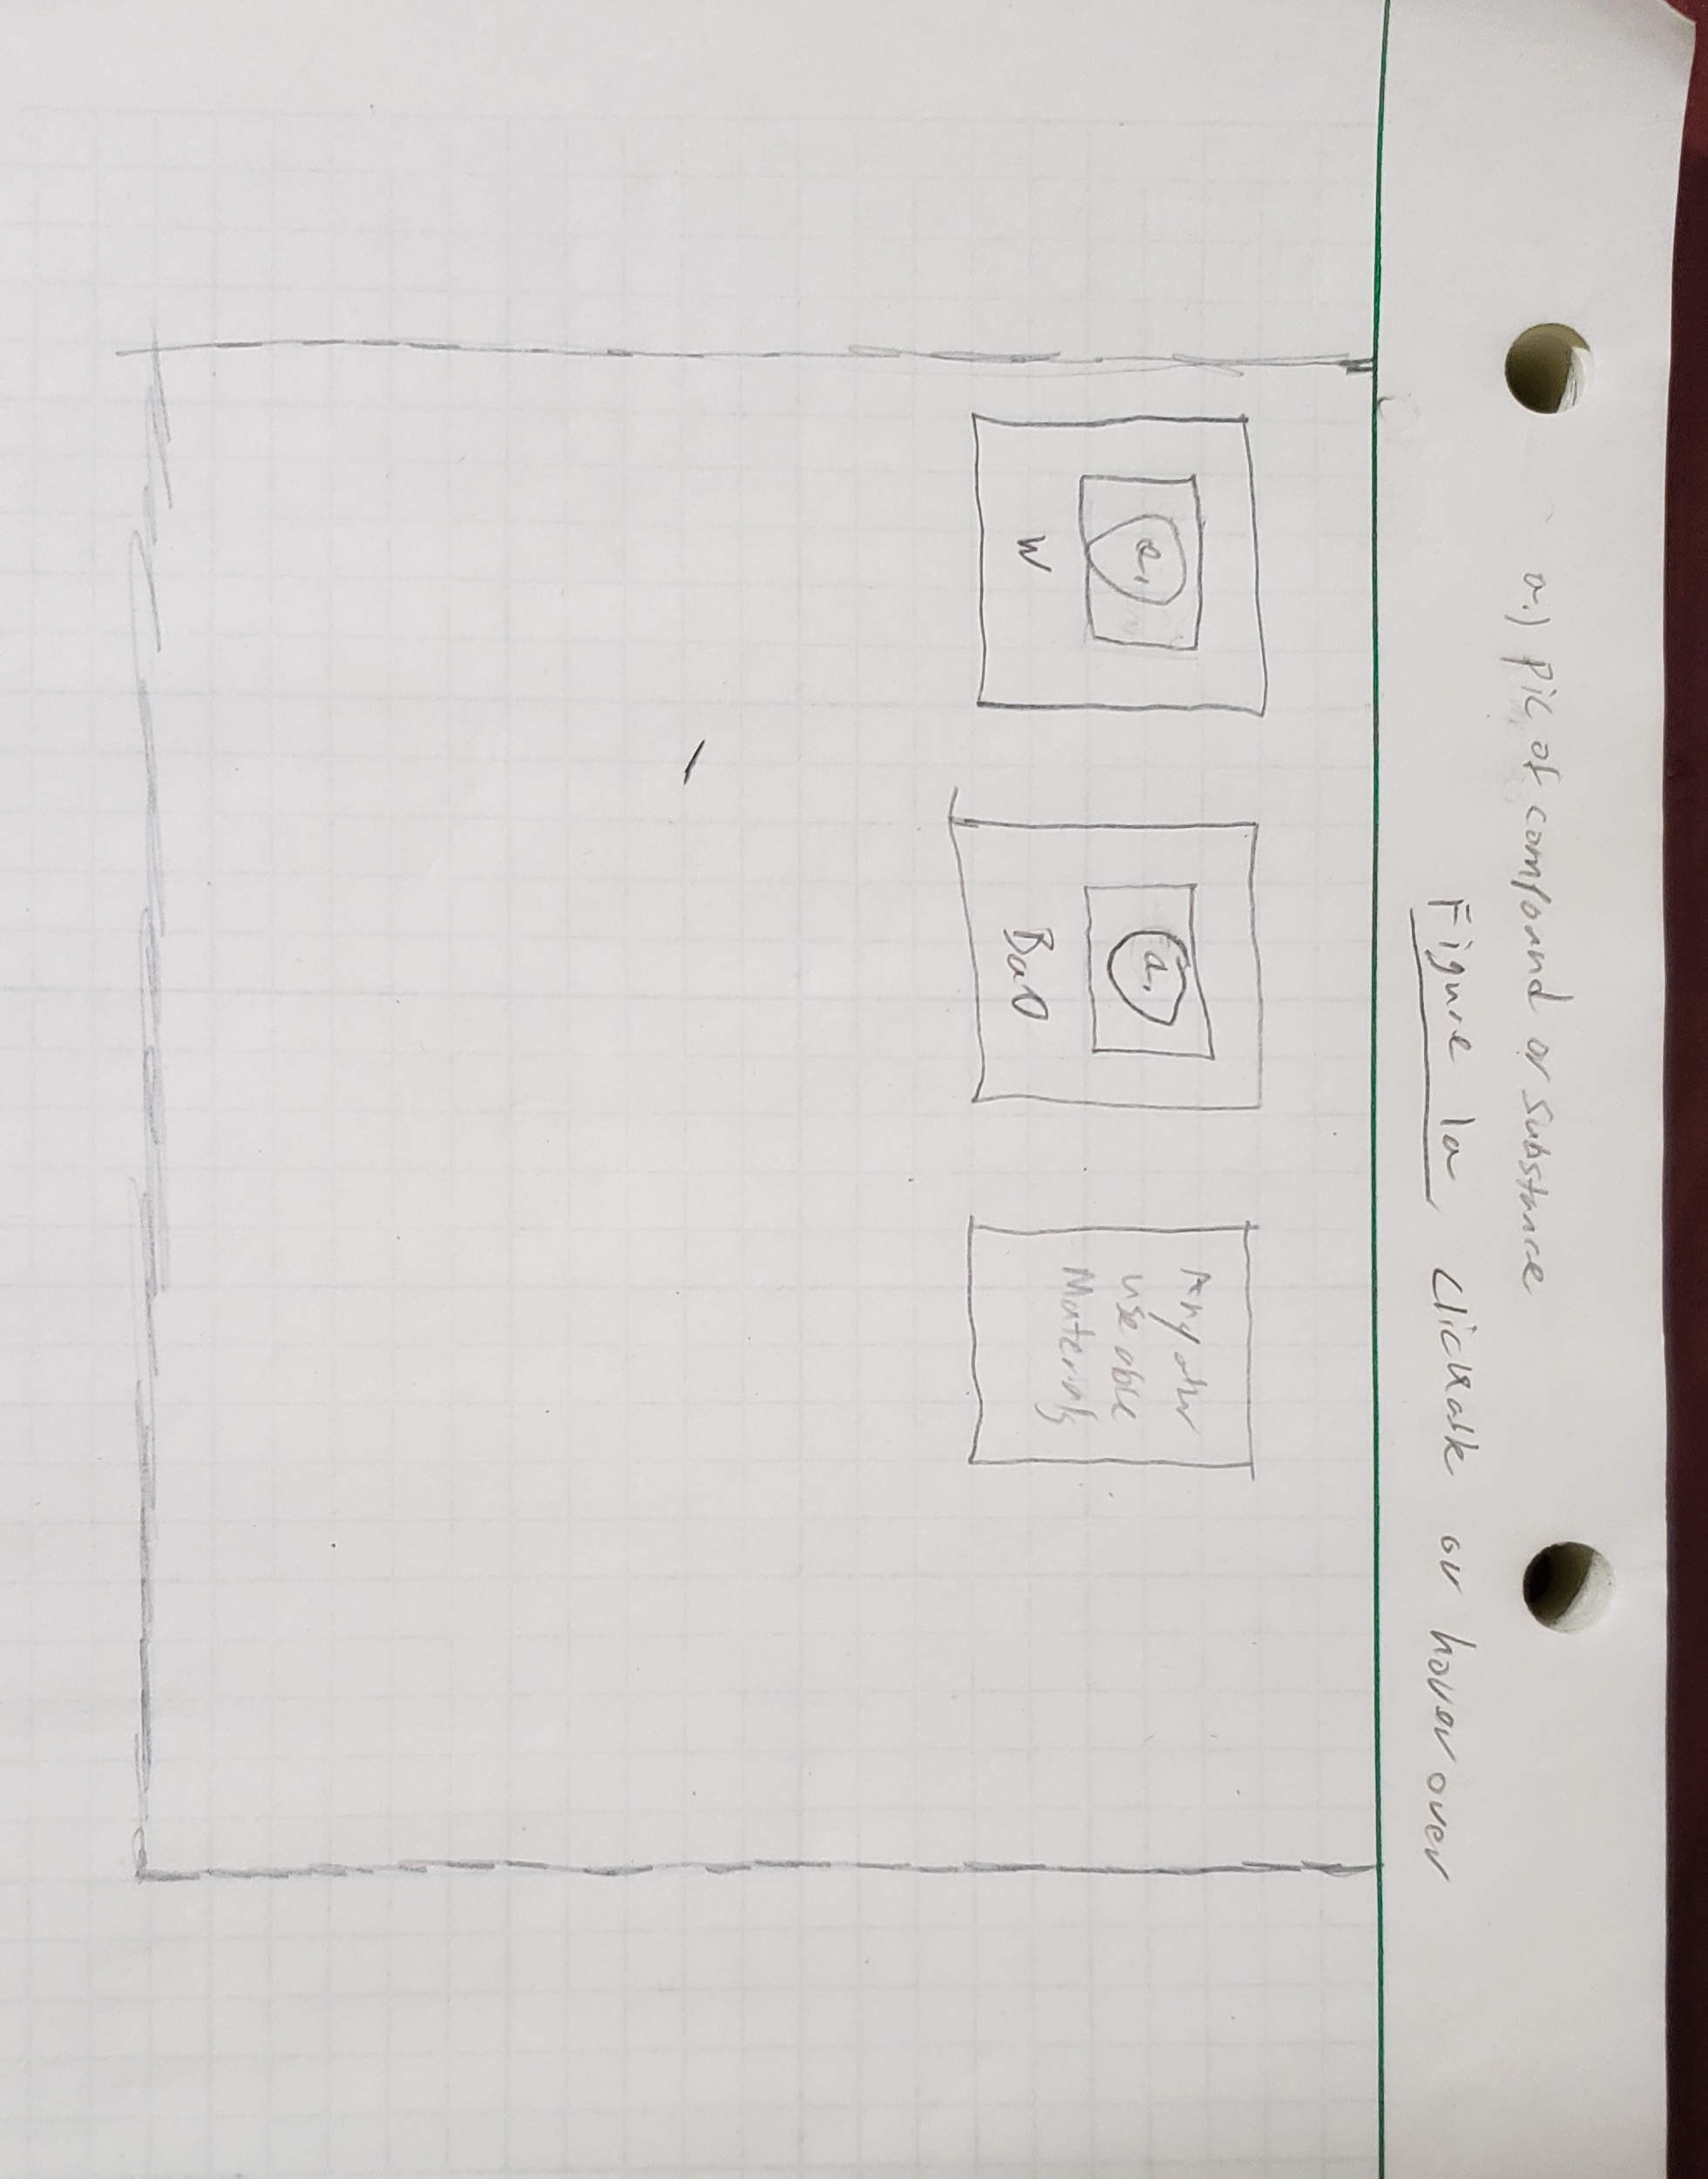 a.) pic of compound or substance
Figure 1a clickable or hover over
a.
W
a.
BaO
Any other
useable
Materials